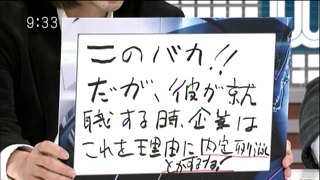 9:33
このバカ!!
だが、彼が就
職する時、企業は
これを理由に内定取り消し
とかするな!